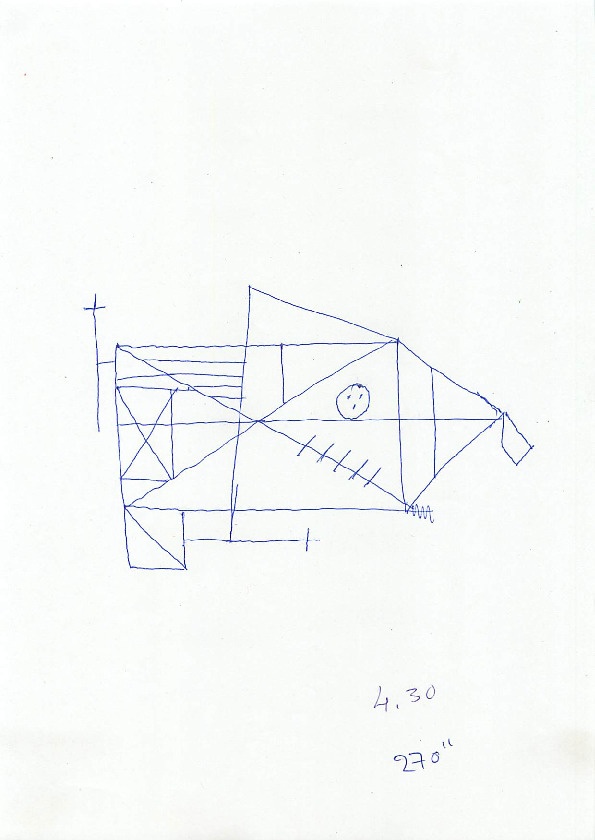 4.30
270"